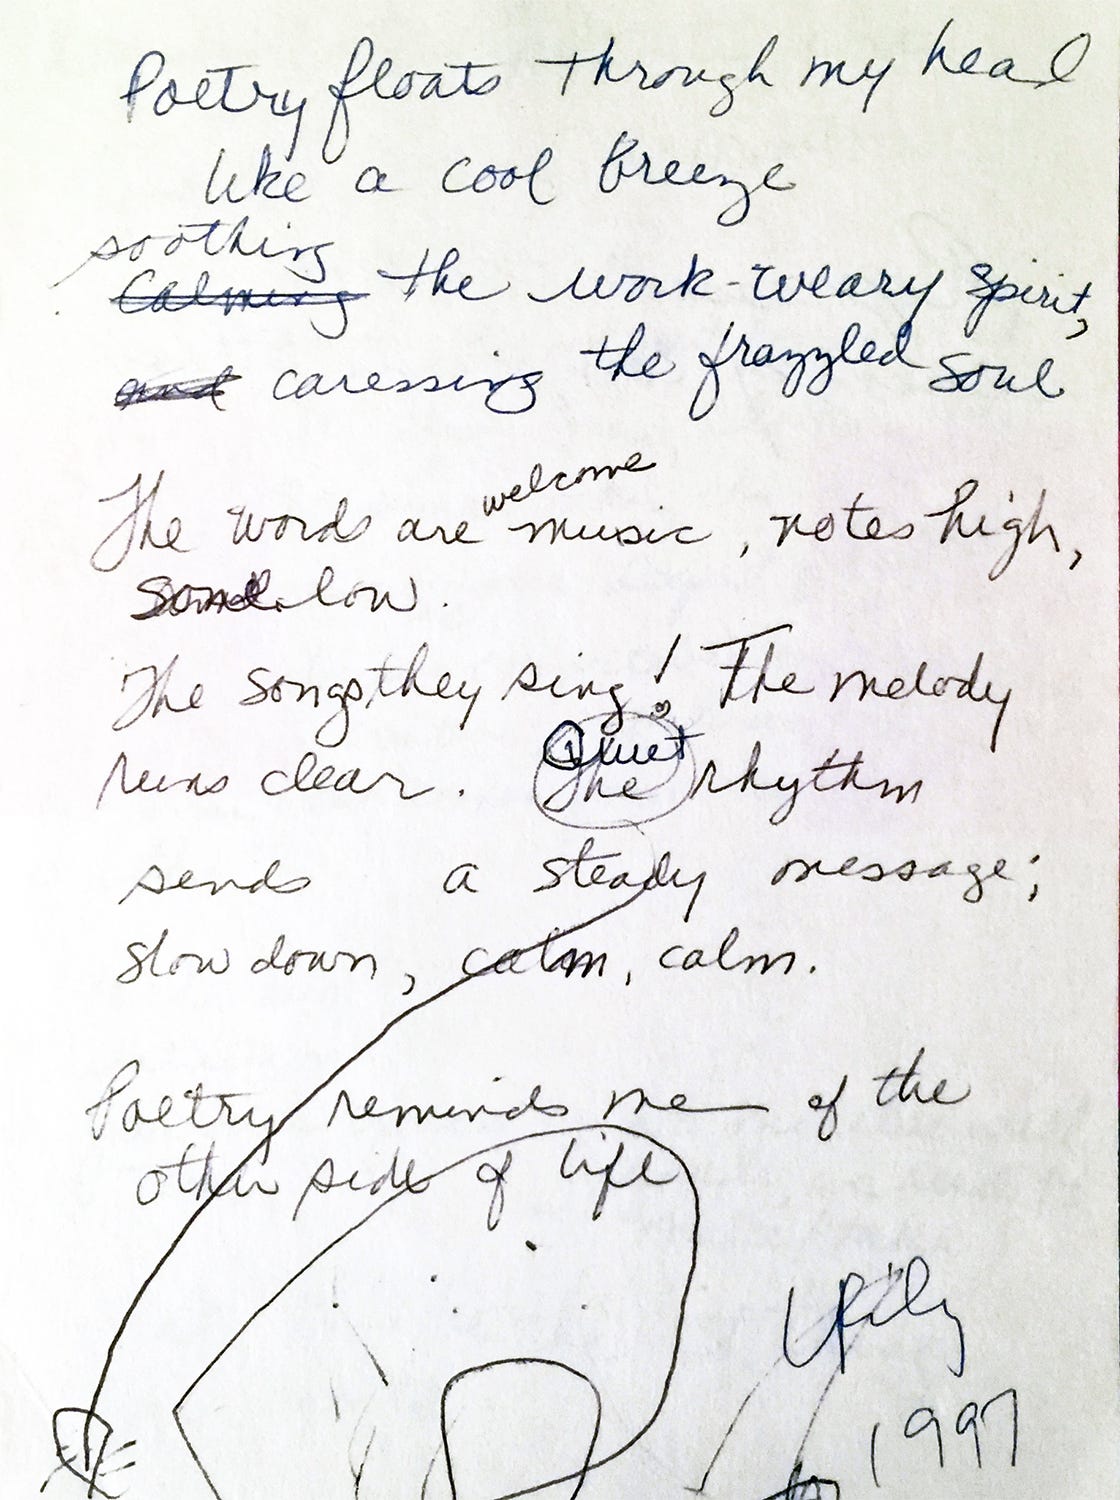 Poetry floats through my head
like a cool breeze
soothing
Calming the work-weary spirit,
and caressing the frazzled soul
welcome
The words are music, notes high,
some low.
The songs they sing! The melody
Quiet
runs clear. The rhythm
sends a steady message;
slow down, calm, calm.
Poetry reminds me of the
other side of life
1997